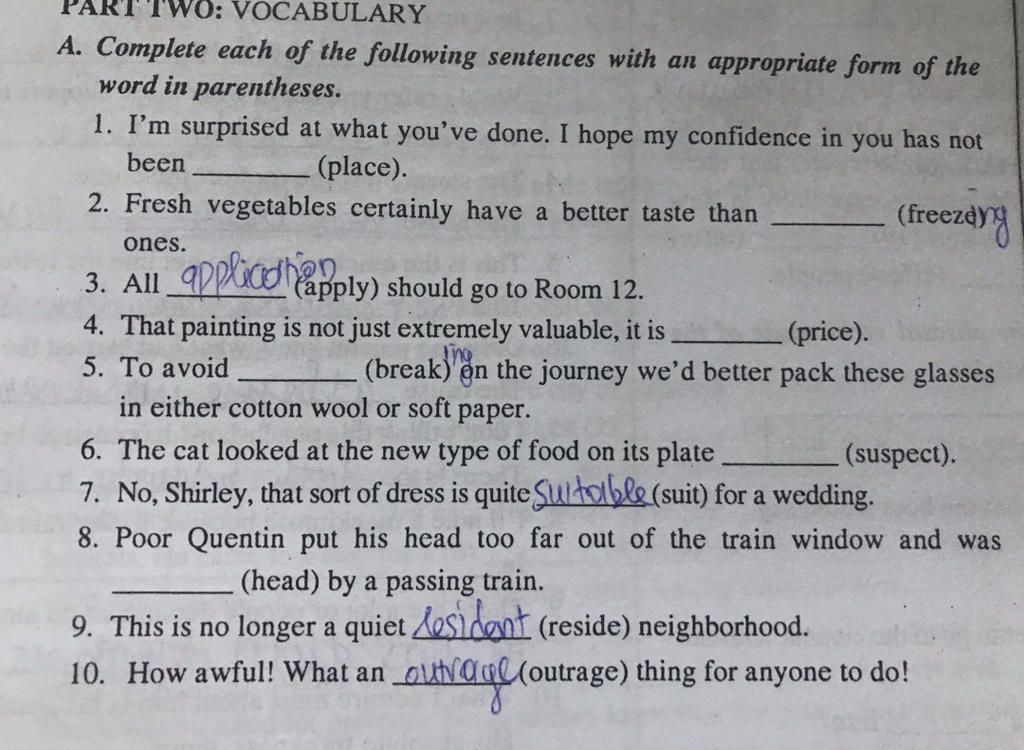 PART TWO: VOCABULARY
A. Complete each of the following sentences with an appropriate form of the
word in parentheses.
1. I'm surprised at what you've done. I hope my confidence in you has not
been __________ (place).
2. Fresh vegetables certainly have a better taste than __________ (freeze)ing
ones.
3. All application (apply) should go to Room 12.
4. That painting is not just extremely valuable, it is __________ (price).
5. To avoid __________ (break)ing on the journey we'd better pack these glasses
in either cotton wool or soft paper.
6. The cat looked at the new type of food on its plate __________ (suspect).
7. No, Shirley, that sort of dress is quite Suitable (suit) for a wedding.
8. Poor Quentin put his head too far out of the train window and was
__________ (head) by a passing train.
9. This is no longer a quiet resident (reside) neighborhood.
10. How awful! What an outrage (outrage) thing for anyone to do!